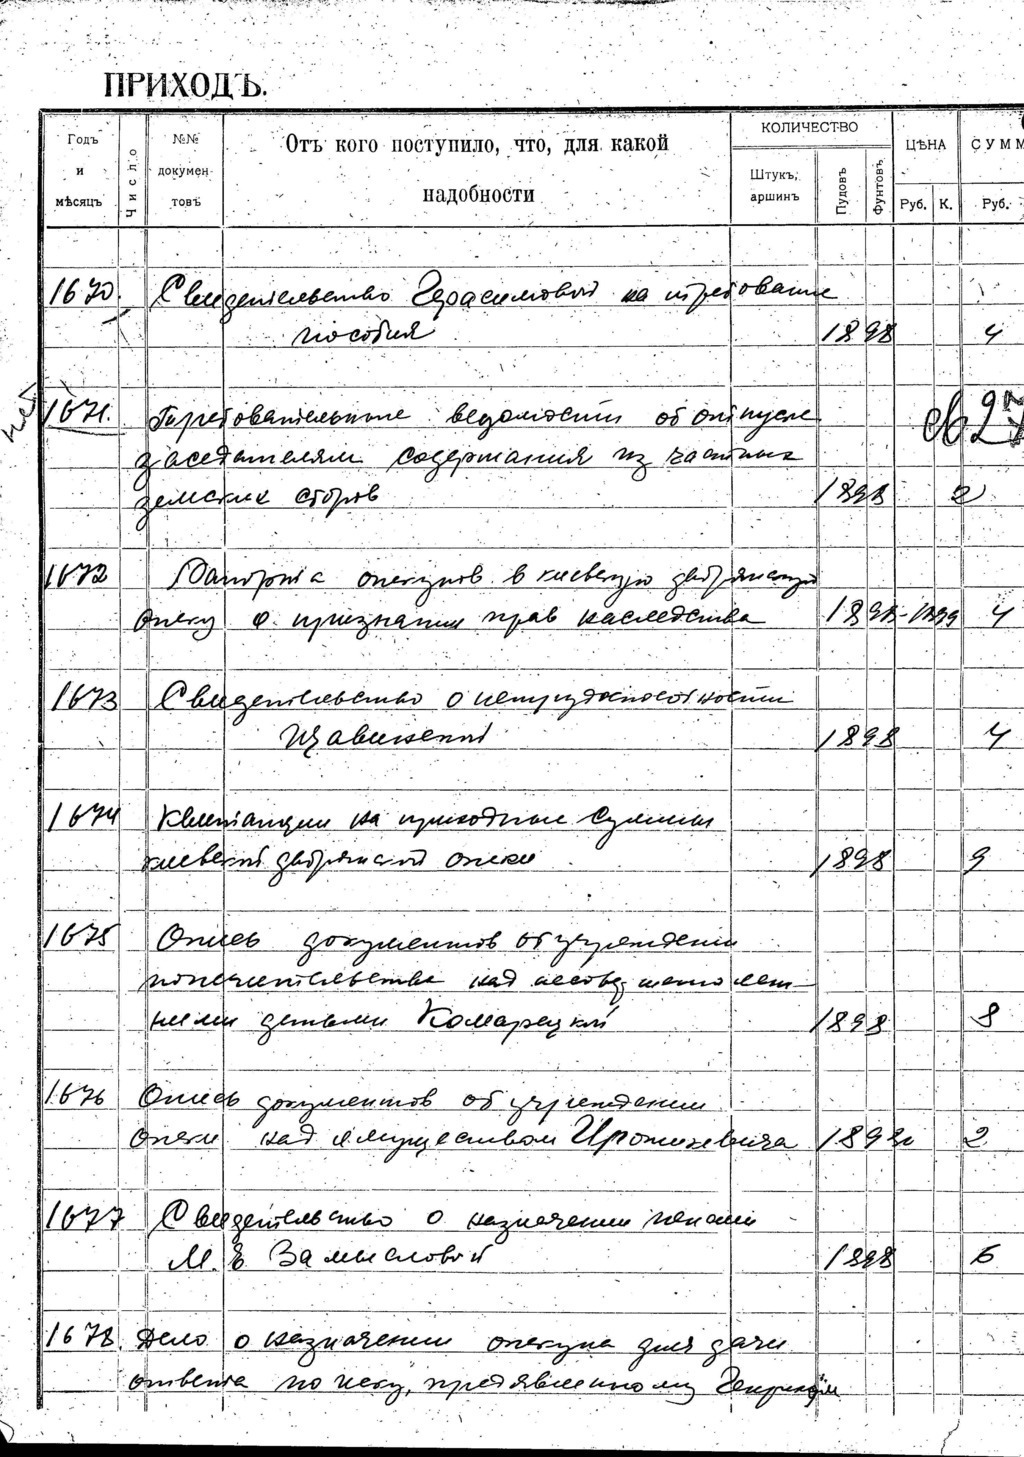 ПРИХОДЪ.
Годъ и мѣсяцъ
Число
№№ докумен-товъ
Отъ кого поступило, что, для какой
надобности
КОЛИЧЕСТВО
Штукъ, аршинъ
Пудовъ
Фунтовъ
ЦѢНА
Руб. К.
СУММ
Руб.
1670. Свидетельство Герасимовой на требование
пособия 1898 4
нет
1671. Требовательные ведомости об отпуске
св 27
заседателям содержания из частных
земских сборов 1898 2
1672 Рапорта опекунов в киевскую дворянскую
опеку о признании прав наследства 1898-1899 4
1673 Свидетельство о нетрудоспособности
1898 4
1674 Квитанции на приходные суммы
киевской дворянской опеки 1898 9
1675 Опись документов об учреждении
попечительства над несовершенолет-
ними детьми Комарецкой 1898 8
1676 Опись документов об учреждении
опеки над имуществом 1898 2
1677 Свидетельство о назначении пенсии
М. Е Замысловой 1898 6
1678. Дело о назначении опекуна для дачи
ответа по иску, предявленному